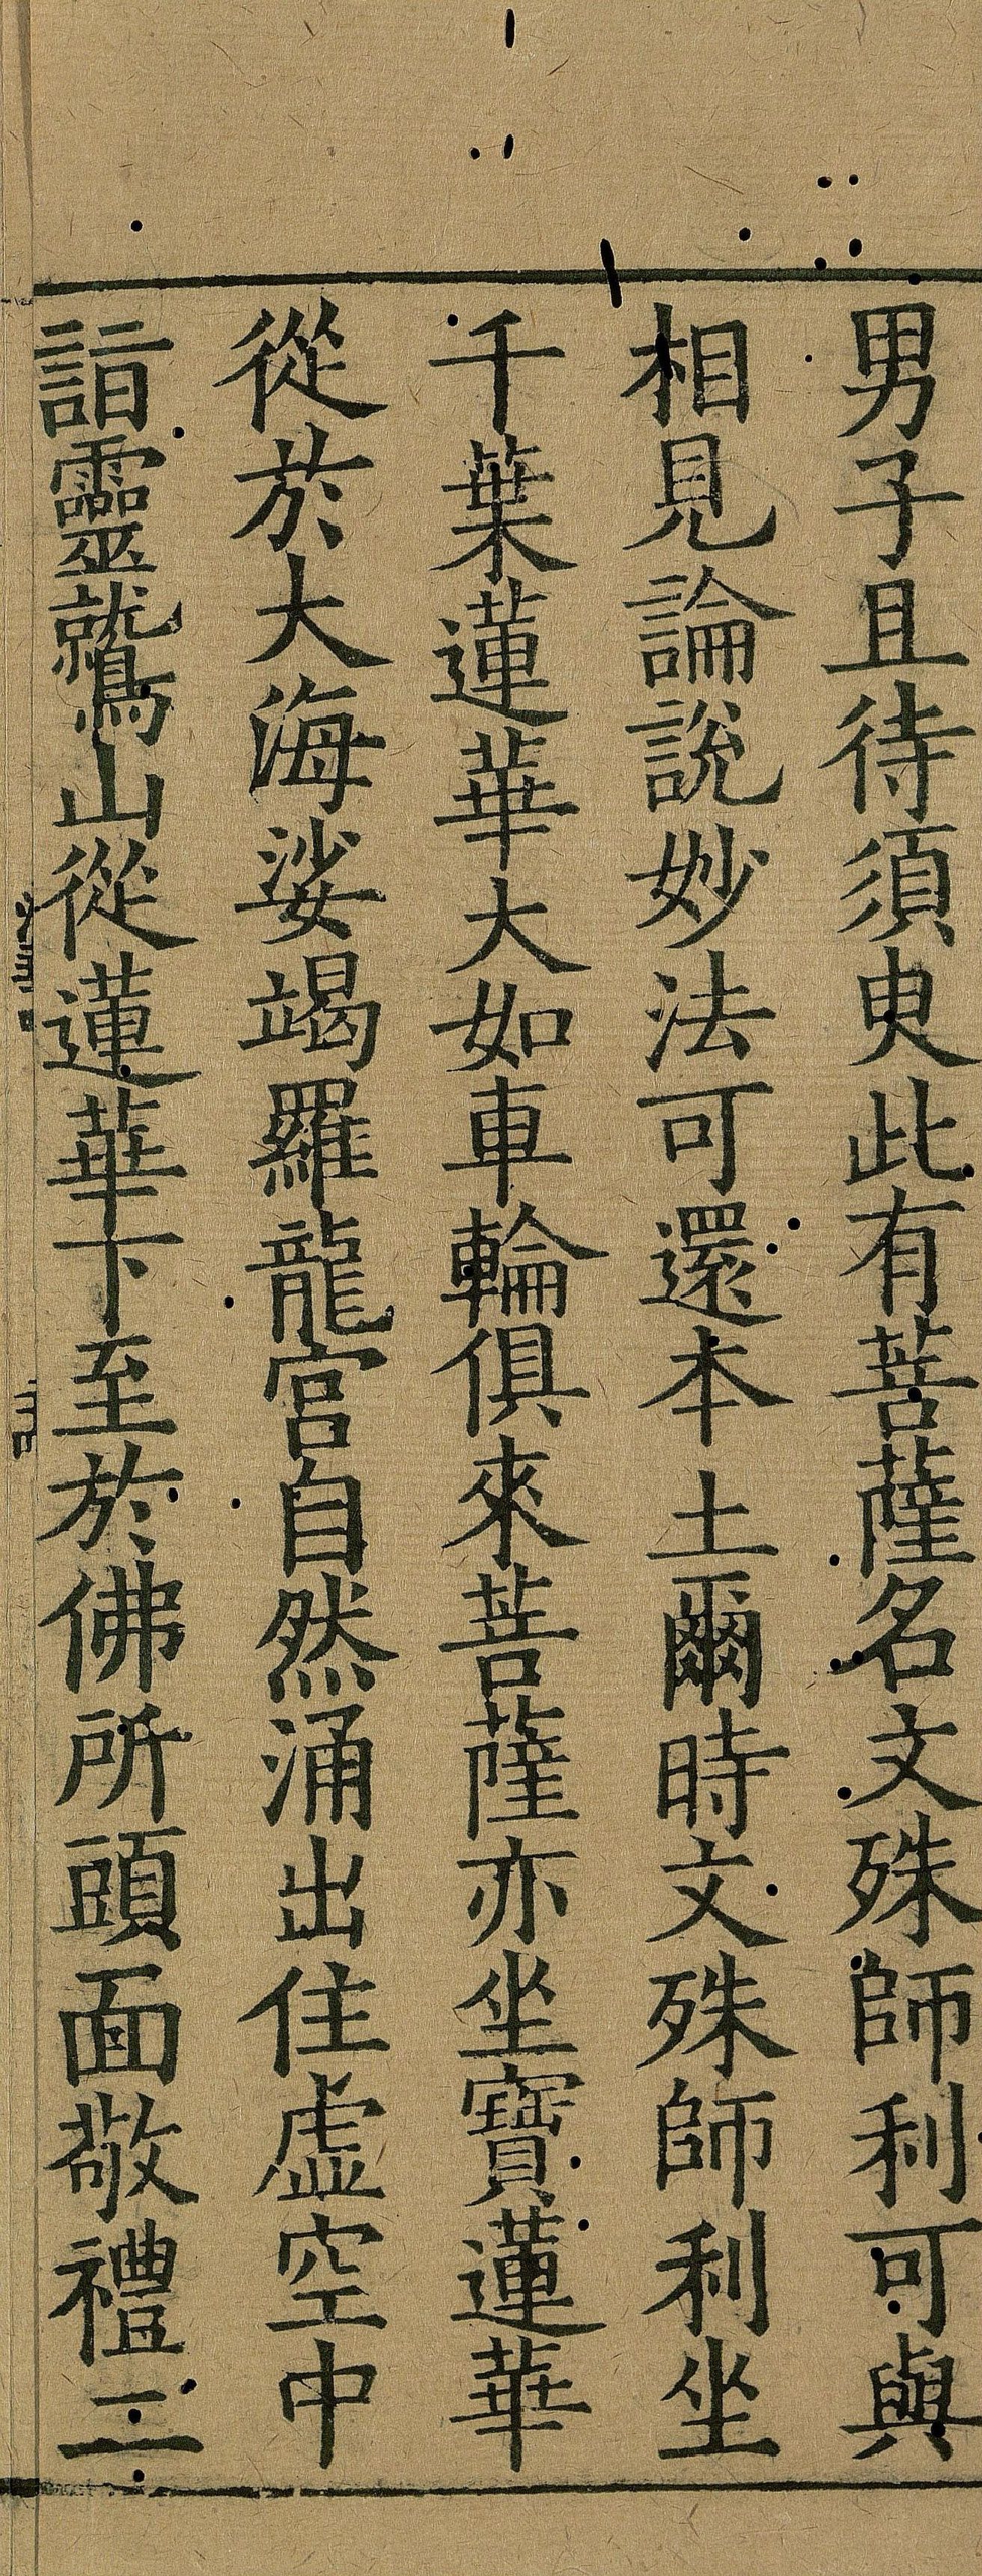 男子且待須臾此有菩薩名文殊師利可與
相見論說妙法可還本土爾時文殊師利坐
千葉蓮華大如車輪俱來菩薩亦坐寶蓮華
從於大海娑竭羅龍宮自然涌出住虛空中
詣靈鷲山從蓮華下至於佛所頭面敬禮二